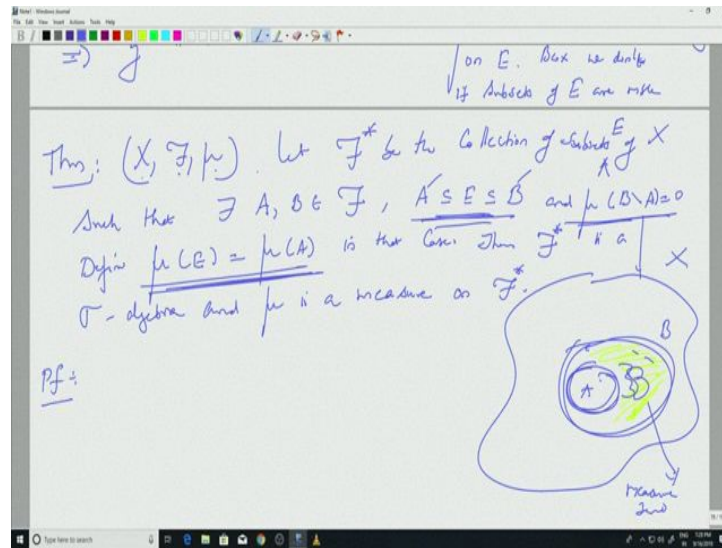 Note1 - Windows Journal
File Edit View Insert Actions Tools Help
on E. But we define
if subsets of E are
Thm: (X, F, μ). Let F* be the Collection of subsets E of X
Such that ∃ A, B ∈ F, A ⊆ E ⊆ B and μ(B\A)=0
Define μ(E) = μ(A) in that Case. Then F* is a
σ-algebra and μ is a measure on F*.
X
B
A
Pf:
measure
zero
Type here to search
ENG
IN
7:28 PM
9/16/2019